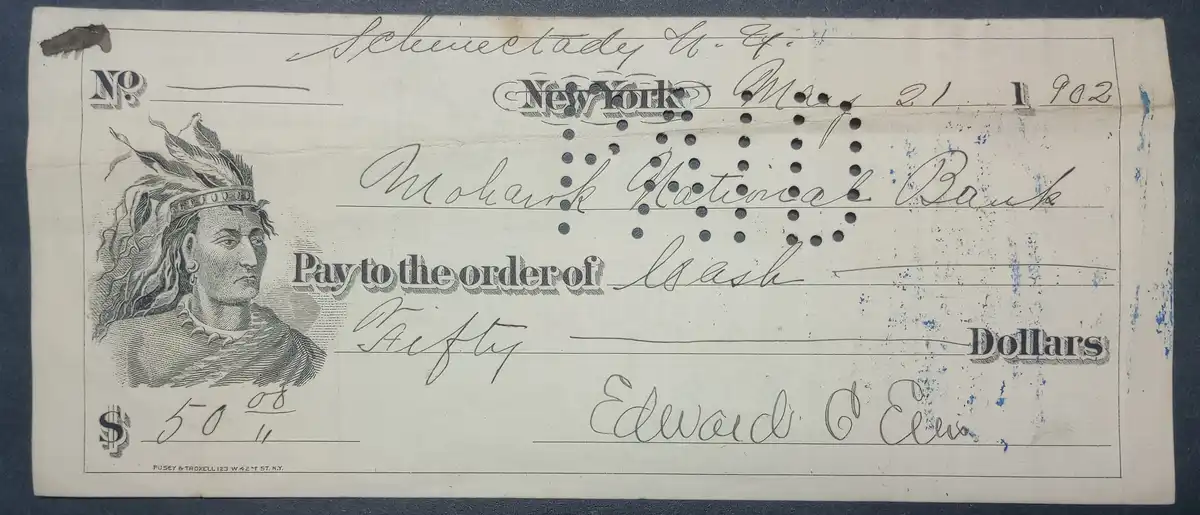 Schenectady N. Y.
No.
New York May 21 1902
PAID
Mohawk National Bank
Pay to the order of Cash
Fifty Dollars
$ 50 00/"
Edward C Ellis
PUSEY & TROXELL 123 W 42ND ST. N.Y.